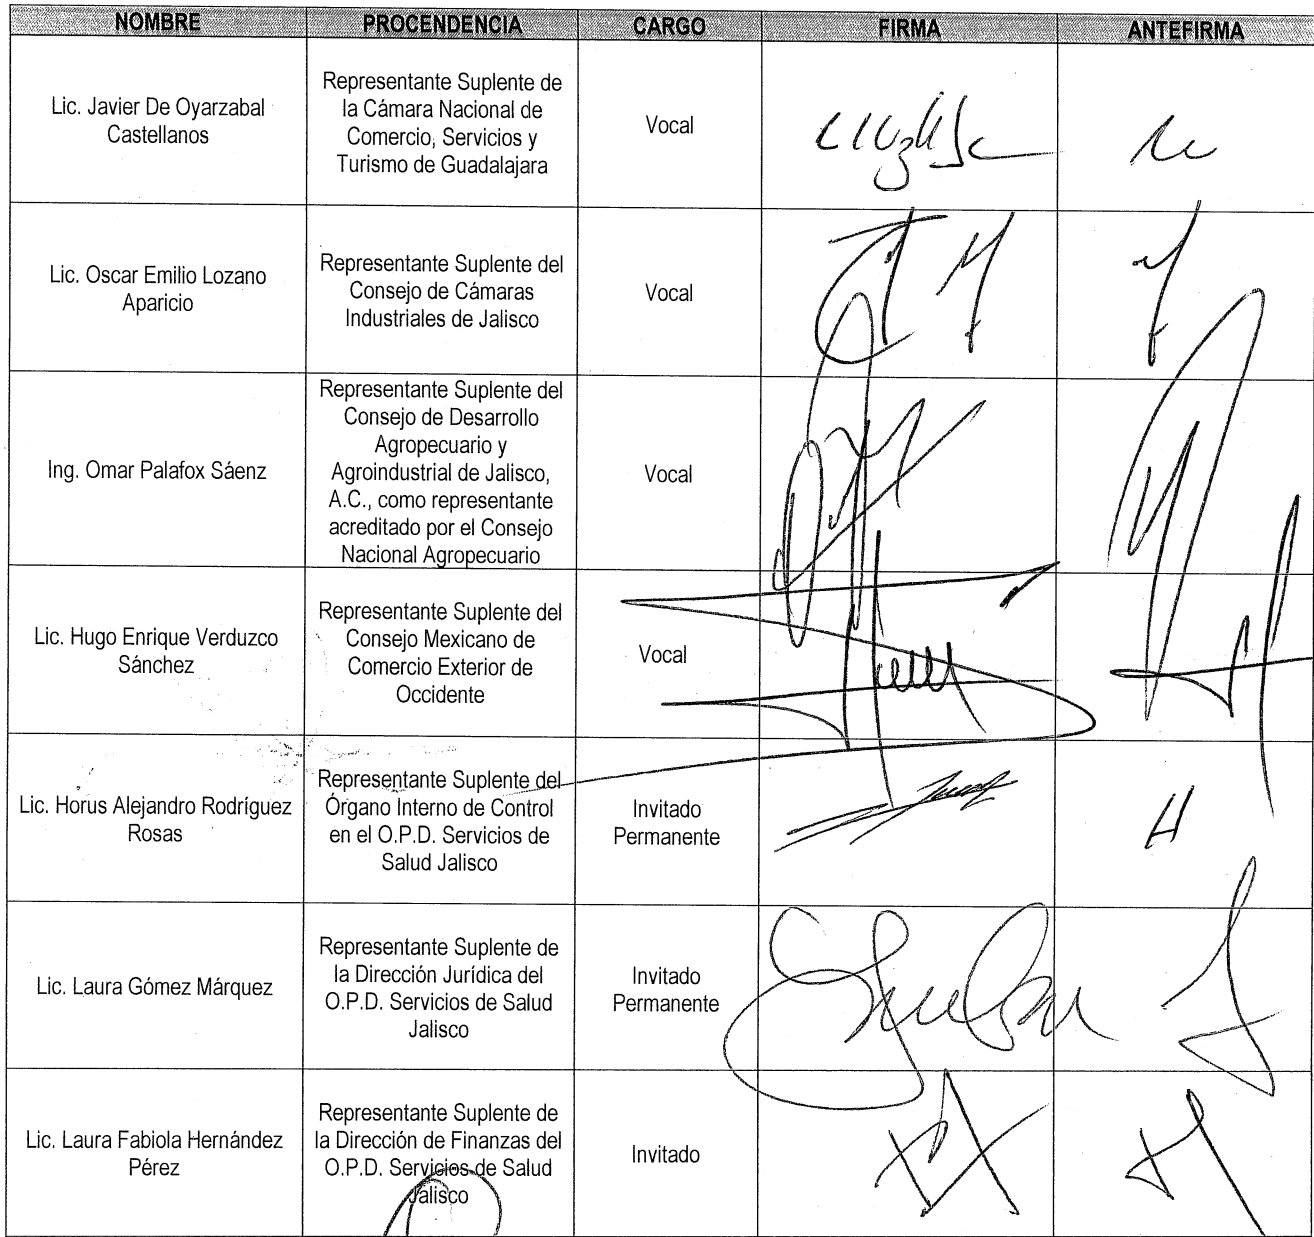 NOMBRE PROCENDENCIA CARGO FIRMA ANTEFIRMA
Lic. Javier De Oyarzabal
Castellanos
Representante Suplente de
la Cámara Nacional de
Comercio, Servicios y
Turismo de Guadalajara
Vocal
Lic. Oscar Emilio Lozano
Aparicio
Representante Suplente del
Consejo de Cámaras
Industriales de Jalisco
Vocal
Ing. Omar Palafox Sáenz
Representante Suplente del
Consejo de Desarrollo
Agropecuario y
Agroindustrial de Jalisco,
A.C., como representante
acreditado por el Consejo
Nacional Agropecuario
Vocal
Lic. Hugo Enrique Verduzco
Sánchez
Representante Suplente del
Consejo Mexicano de
Comercio Exterior de
Occidente
Vocal
Lic. Horus Alejandro Rodríguez
Rosas
Representante Suplente del
Órgano Interno de Control
en el O.P.D. Servicios de
Salud Jalisco
Invitado
Permanente
H
Lic. Laura Gómez Márquez
Representante Suplente de
la Dirección Jurídica del
O.P.D. Servicios de Salud
Jalisco
Invitado
Permanente
Lic. Laura Fabiola Hernández
Pérez
Representante Suplente de
la Dirección de Finanzas del
O.P.D. Servicios de Salud
Jalisco
Invitado